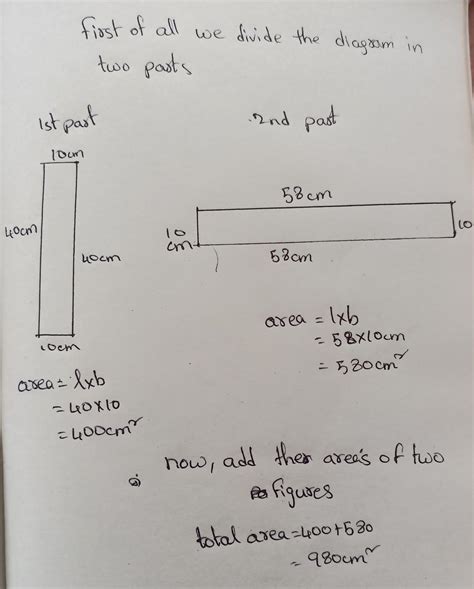 first of all we divide the diagram in
two parts
1st part
2nd part
10cm
40cm
40cm
10cm
58cm
10
cm
10
58cm
area = lxb
= 58x10cm
= 580cm²
area = lxb
= 40x10
= 400cm²
now, add ther area's of two
figures
total area=400+580
= 980cm²